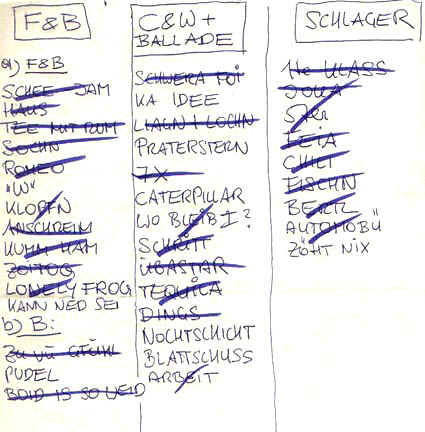 F&B
a) F&B
SCHEE JAM
HAUS
TEE MIT RUM
SOCHN
ROMEO
"W"
KLOPFN
ANSCHREIM
KUMM HAM
ZOITOG
LONELY FROG
KANN NED SEI
b) B:
ZU VÜ GFÜHL
PUDEL
BOID IS SO WEID
C&W +
BALLADE
SCHWERA FOI
KA IDEE
LIAGN & LOCHN
PRATERSTERN
7X
CATERPILLAR
WO BLEIB I?
SCHRITT
ÜBASTAR
TEQUILA
DINGS
NOCHTSCHICHT
BLATTSCHUSS
ARBEIT
SCHLAGER
1te KLASS
5er
LEIA
CHILI
FISCHN
BERTL
AUTOMOBÜ
ZÖHT NIX